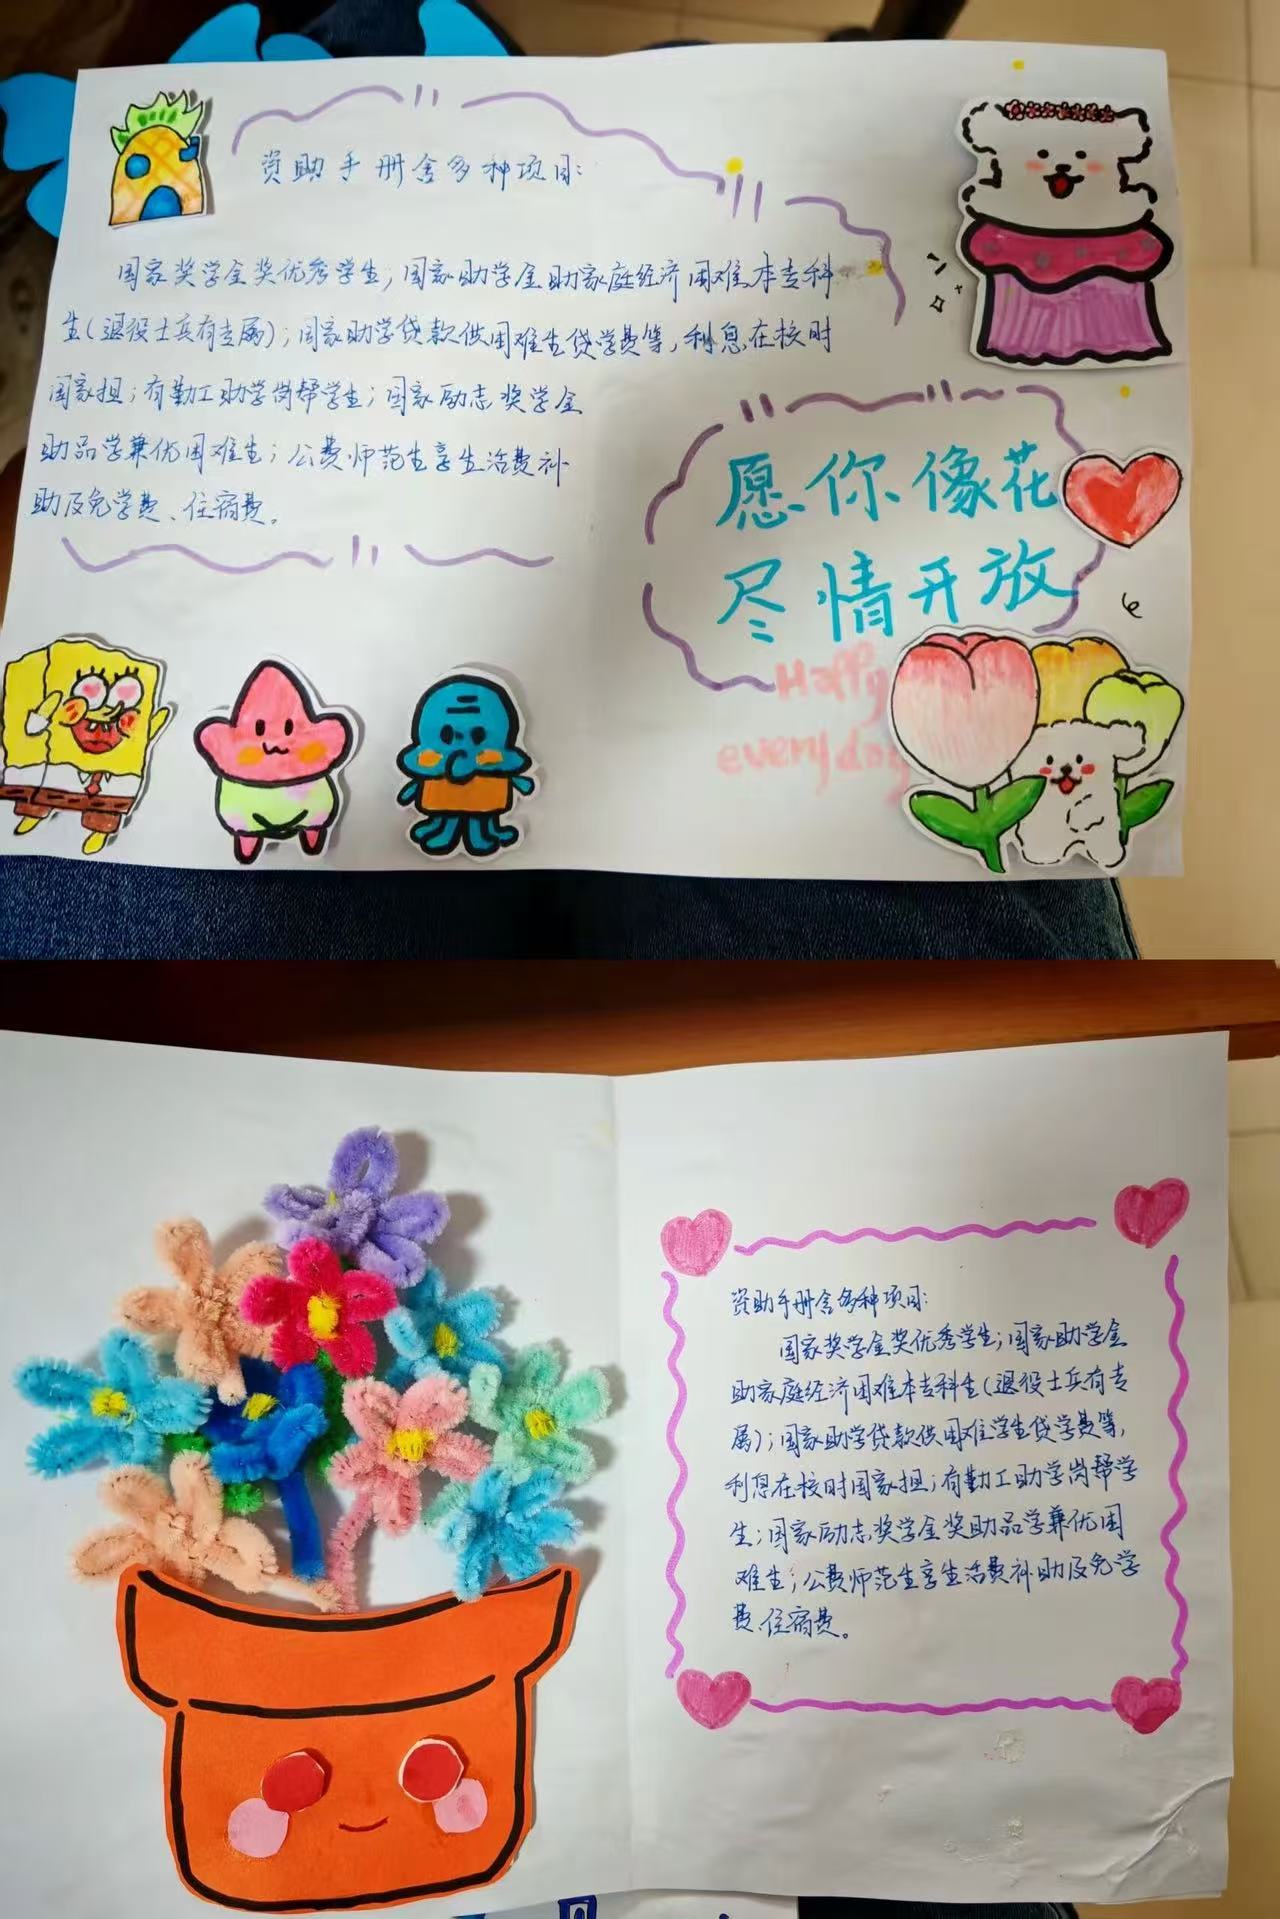 资助手册含多种项目:
国家奖学金奖优秀学生;国家助学金助家庭经济困难本专科
生(退役士兵有专属);国家助学贷款供困难生贷学费等,利息在校时
国家担;有勤工助学岗帮学生;国家励志奖学金
助品学兼优困难生;公费师范生享生活费补
助及免学费、住宿费。
愿你像花
尽情开放
Happy
everyday
资助手册含多种项目:
国家奖学金奖优秀学生;国家助学金
助家庭经济困难本专科生(退役士兵有专
属);国家助学贷款供困难学生贷学费等,
利息在校时国家担;有勤工助学岗帮学
生;国家励志奖学金奖助品学兼优困
难生;公费师范生享生活费补助及免学
费、住宿费。